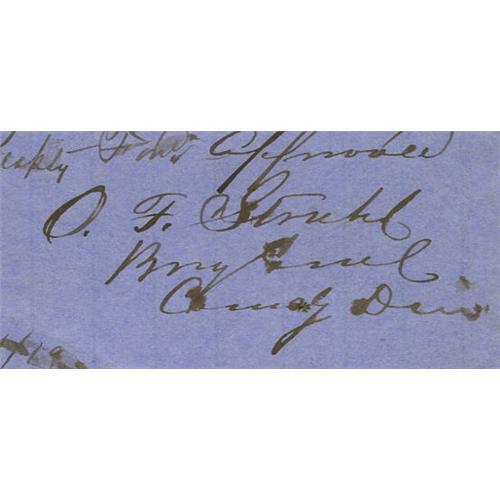 Approved
O. F. Strahl
Brig Genl
Comdg Div